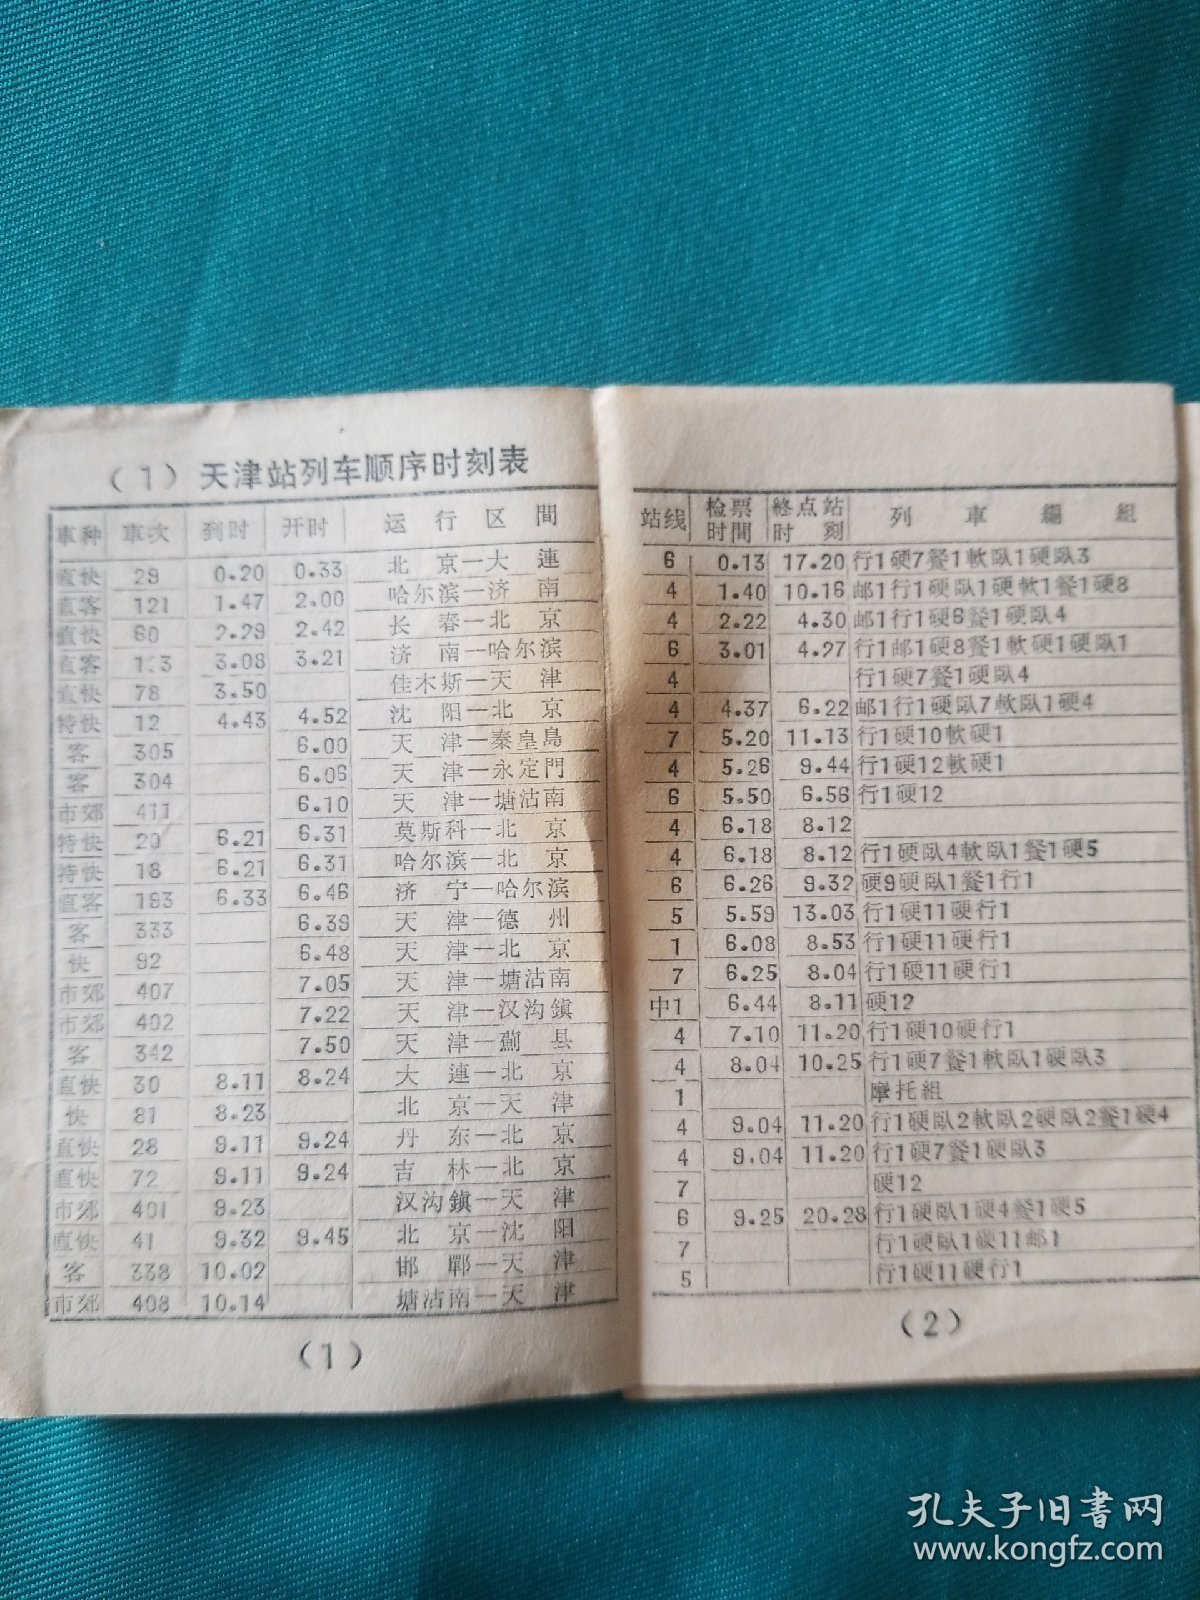 (1) 天津站列车顺序时刻表
車种 車次 到时 开时 运行区間
直快 29 0.20 0.33 北京—大連
直客 121 1.47 2.00 哈尔滨—济南
直快 60 2.29 2.42 长春—北京
直客 123 3.08 3.21 济南—哈尔滨
直快 78 3.50 佳木斯—天津
特快 12 4.43 4.52 沈阳—北京
客 305 6.00 天津—秦皇島
客 304 6.06 天津—永定門
市郊 411 6.10 天津—塘沽南
特快 20 6.21 6.31 莫斯科—北京
特快 18 6.21 6.31 哈尔滨—北京
直客 183 6.33 6.46 济宁—哈尔滨
客 333 6.39 天津—德州
快 92 6.48 天津—北京
市郊 407 7.05 天津—塘沽南
市郊 402 7.22 天津—汉沟鎮
客 342 7.50 天津—蓟县
直快 30 8.11 8.24 大連—北京
快 81 8.23 北京—天津
直快 28 9.11 9.24 丹东—北京
直快 72 9.11 9.24 吉林—北京
市郊 401 9.23 汉沟鎮—天津
直快 41 9.32 9.45 北京—沈阳
客 338 10.02 邯鄲—天津
市郊 408 10.14 塘沽南—天津
(1)
站线 检票时間 終点站时刻 列車編組
6 0.13 17.20 行1硬7餐1軟臥1硬臥3
4 1.40 10.16 邮1行1硬臥1硬軟1餐1硬8
4 2.22 4.30 邮1行1硬6餐1硬臥4
6 3.01 4.27 行1邮1硬8餐1軟硬1硬臥1
4 行1硬7餐1硬臥4
4 4.37 6.22 邮1行1硬臥7軟臥1硬4
7 5.20 11.13 行1硬10軟硬1
4 5.26 9.44 行1硬12軟硬1
6 5.50 6.58 行1硬12
4 6.18 8.12
4 6.18 8.12 行1硬臥4軟臥1餐1硬5
6 6.26 9.32 硬9硬臥1餐1行1
5 5.59 13.03 行1硬11硬行1
1 6.08 8.53 行1硬11硬行1
7 6.25 8.04 行1硬11硬行1
中1 6.44 8.11 硬12
4 7.10 11.20 行1硬10硬行1
4 8.04 10.25 行1硬7餐1軟臥1硬臥3
1 摩托組
4 9.04 11.20 行1硬臥2軟臥2硬臥2餐1硬4
4 9.04 11.20 行1硬7餐1硬臥3
7 硬12
6 9.25 20.28 行1硬臥1硬4餐1硬5
7 行1硬臥1硬11邮1
5 行1硬11硬行1
(2)
孔夫子旧書网
www.kongfz.com